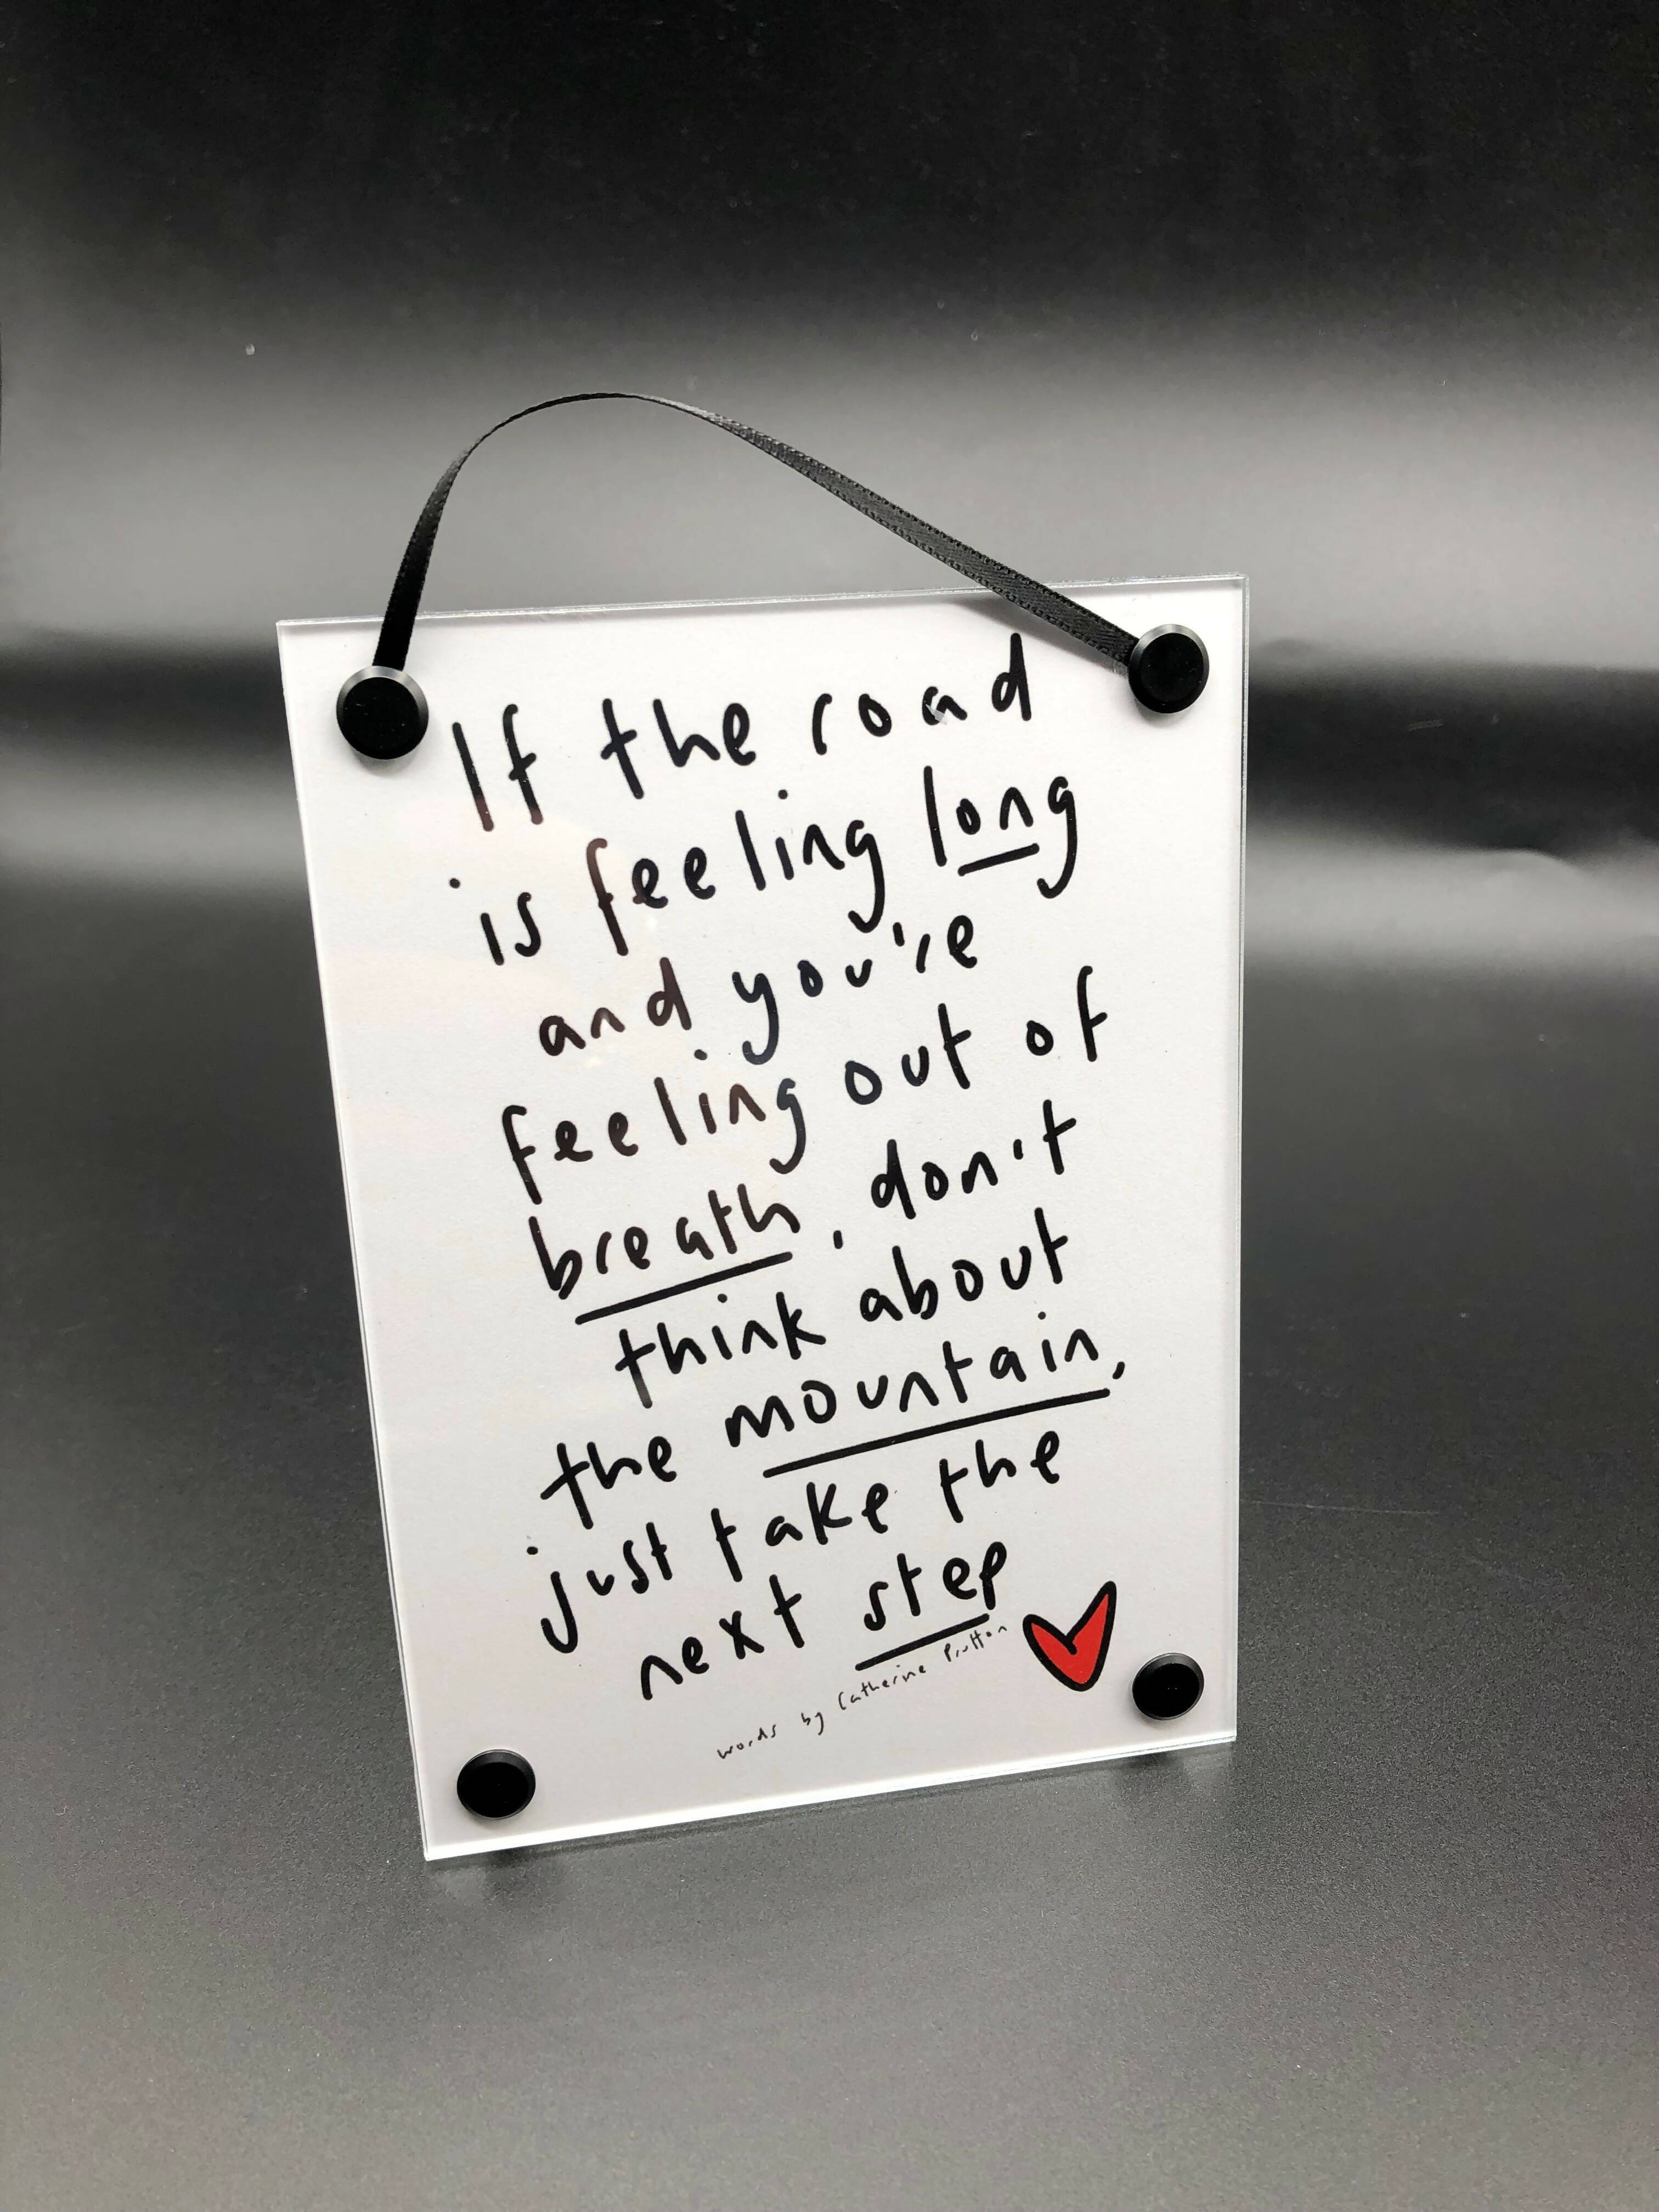 If the road
is feeling long
and you're
feeling out of
breath, don't
think about
the mountain,
just take the
next step
words by Catherine Prutton